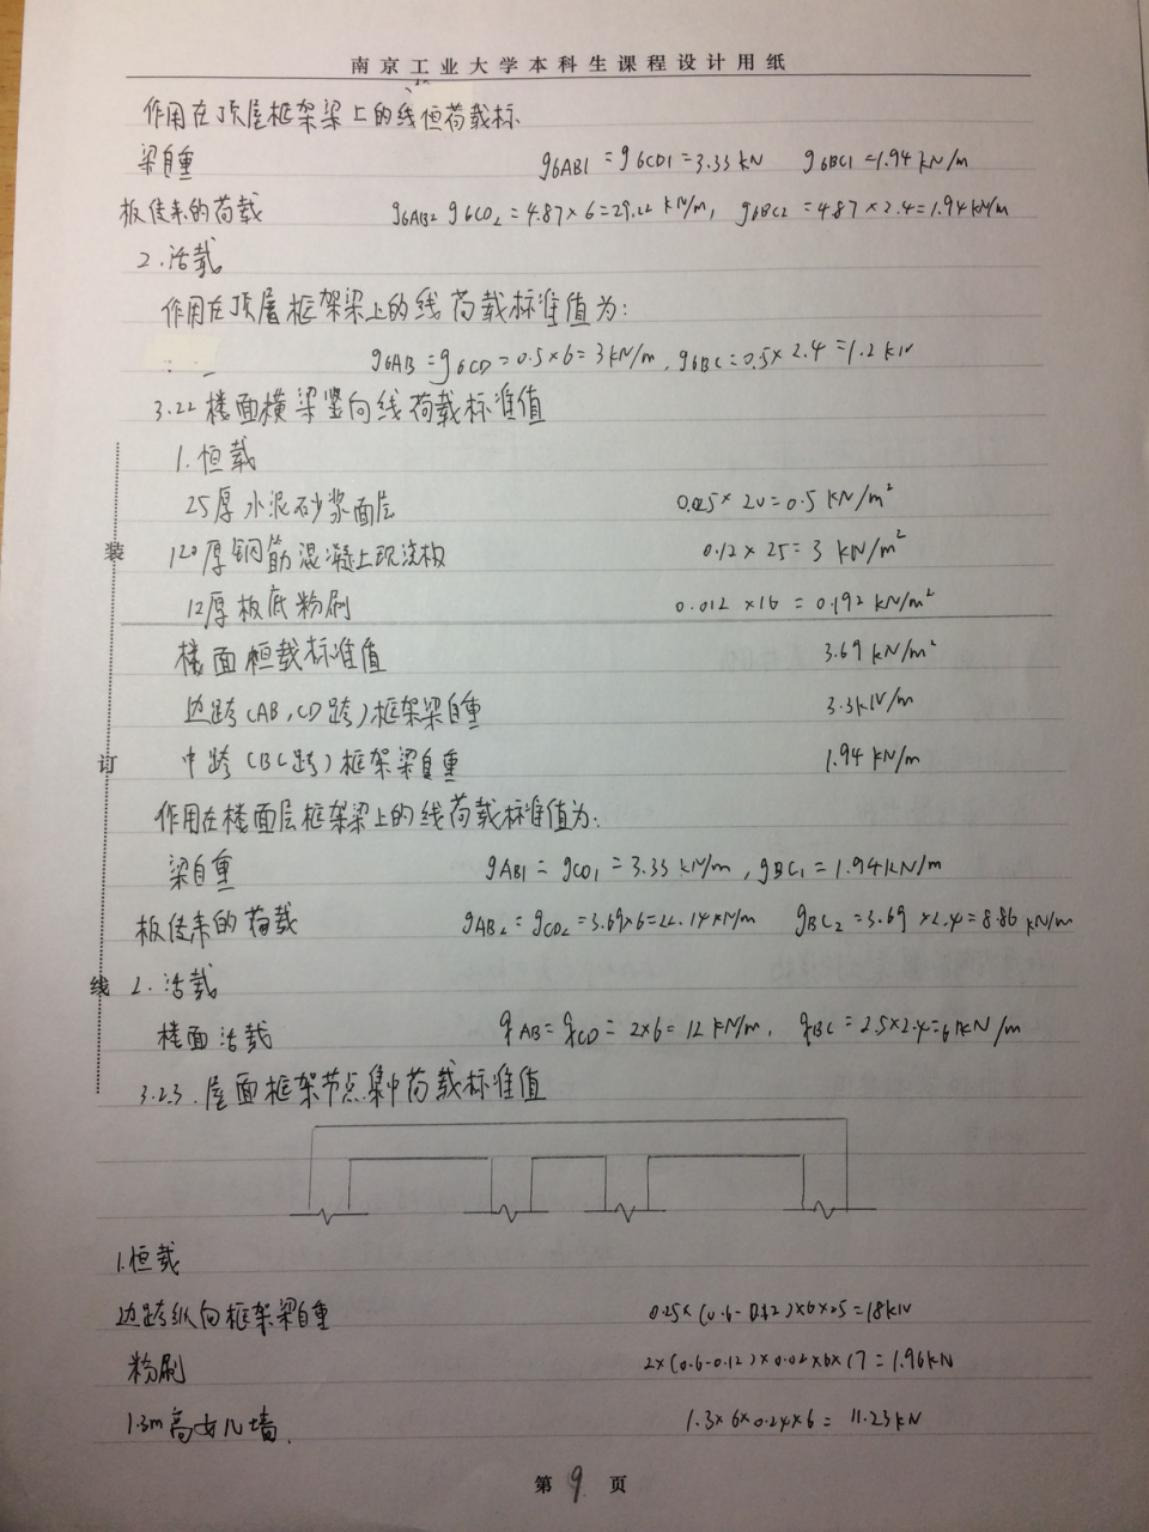 南京工业大学本科生课程设计用纸
作用在顶层框架梁上的线恒荷载标
梁自重 g6AB1 = g6CD1 = 3.33 kN g6BC1 = 1.94 kN/m
板传来的荷载 g6AB2 g6CD2 = 4.87 × 6 = 29.22 kN/m, g6BC2 = 4.87 × 2.4 = 1.94 kN/m
2.活载
作用在顶层框架梁上的线荷载标准值为:
g6AB = g6CD = 0.5×6 = 3kN/m, g6BC = 0.5× 2.4 = 1.2 kN
3.22 楼面横梁竖向线荷载标准值
1.恒载
25厚水泥砂浆面层 0.025× 20 = 0.5 kN/m²
装
120厚钢筋混凝土现浇板 0.12 × 25 = 3 kN/m²
12厚板底粉刷 0.012 ×16 = 0.192 kN/m²
楼面恒载标准值 3.69 kN/m²
边跨(AB,CD跨)框架梁自重 3.3kN/m
订
中跨(BC跨)框架梁自重 1.94 kN/m
作用在楼面层框架梁上的线荷载标准值为:
梁自重 gAB1 = gCD1 = 3.33 kN/m, gBC1 = 1.94kN/m
板传来的荷载 gAB2 = gCD2 = 3.69×6 = 22.14 kN/m gBC2 = 3.69 ×2.4 = 8.86 kN/m
线
2.活载
楼面活载 qAB = qCD = 2×6 = 12 kN/m, qBC = 2.5×2.4 = 6kN/m
3.2.3.屋面框架节点集中荷载标准值
1.恒载
边跨纵向框架梁自重 0.25×(0.6-0.12)×6×25 = 18kN
粉刷 2×(0.6-0.12)×0.02×6×17 = 1.96kN
1.3m高女儿墙. 1.3×6×0.24×6 = 11.23kN
第 9 页